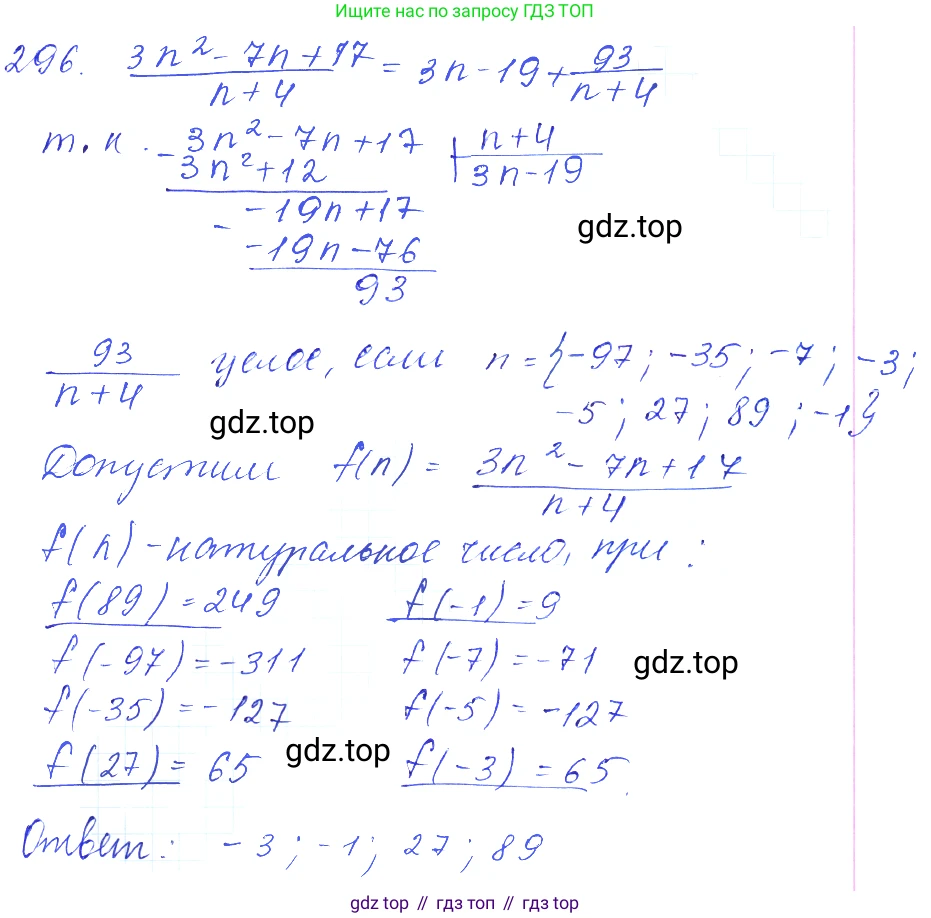 Ищите нас по запросу ГДЗ ТОП
296. (3n² - 7n + 17)/(n + 4) = 3n - 19 + 93/(n + 4)
т. к. - 3n² - 7n + 17 | n + 4
3n² + 12 | 3n - 19
- -19n + 17
-19n - 76
93
gdz.top
93/(n + 4) целое, если n = {-97; -35; -7; -3;
-5; 27; 89; -1}
gdz.top
Допустим f(n) = (3n² - 7n + 17)/(n + 4)
f(n) - натуральное число, при:
f(89) = 249 f(-1) = 9
f(-97) = -311 f(-7) = -71 gdz.top
f(-35) = -127 f(-5) = -127
f(27) = 65 gdz.top f(-3) = 65.
Ответ: -3; -1; 27; 89
gdz top // гдз топ // гдз top